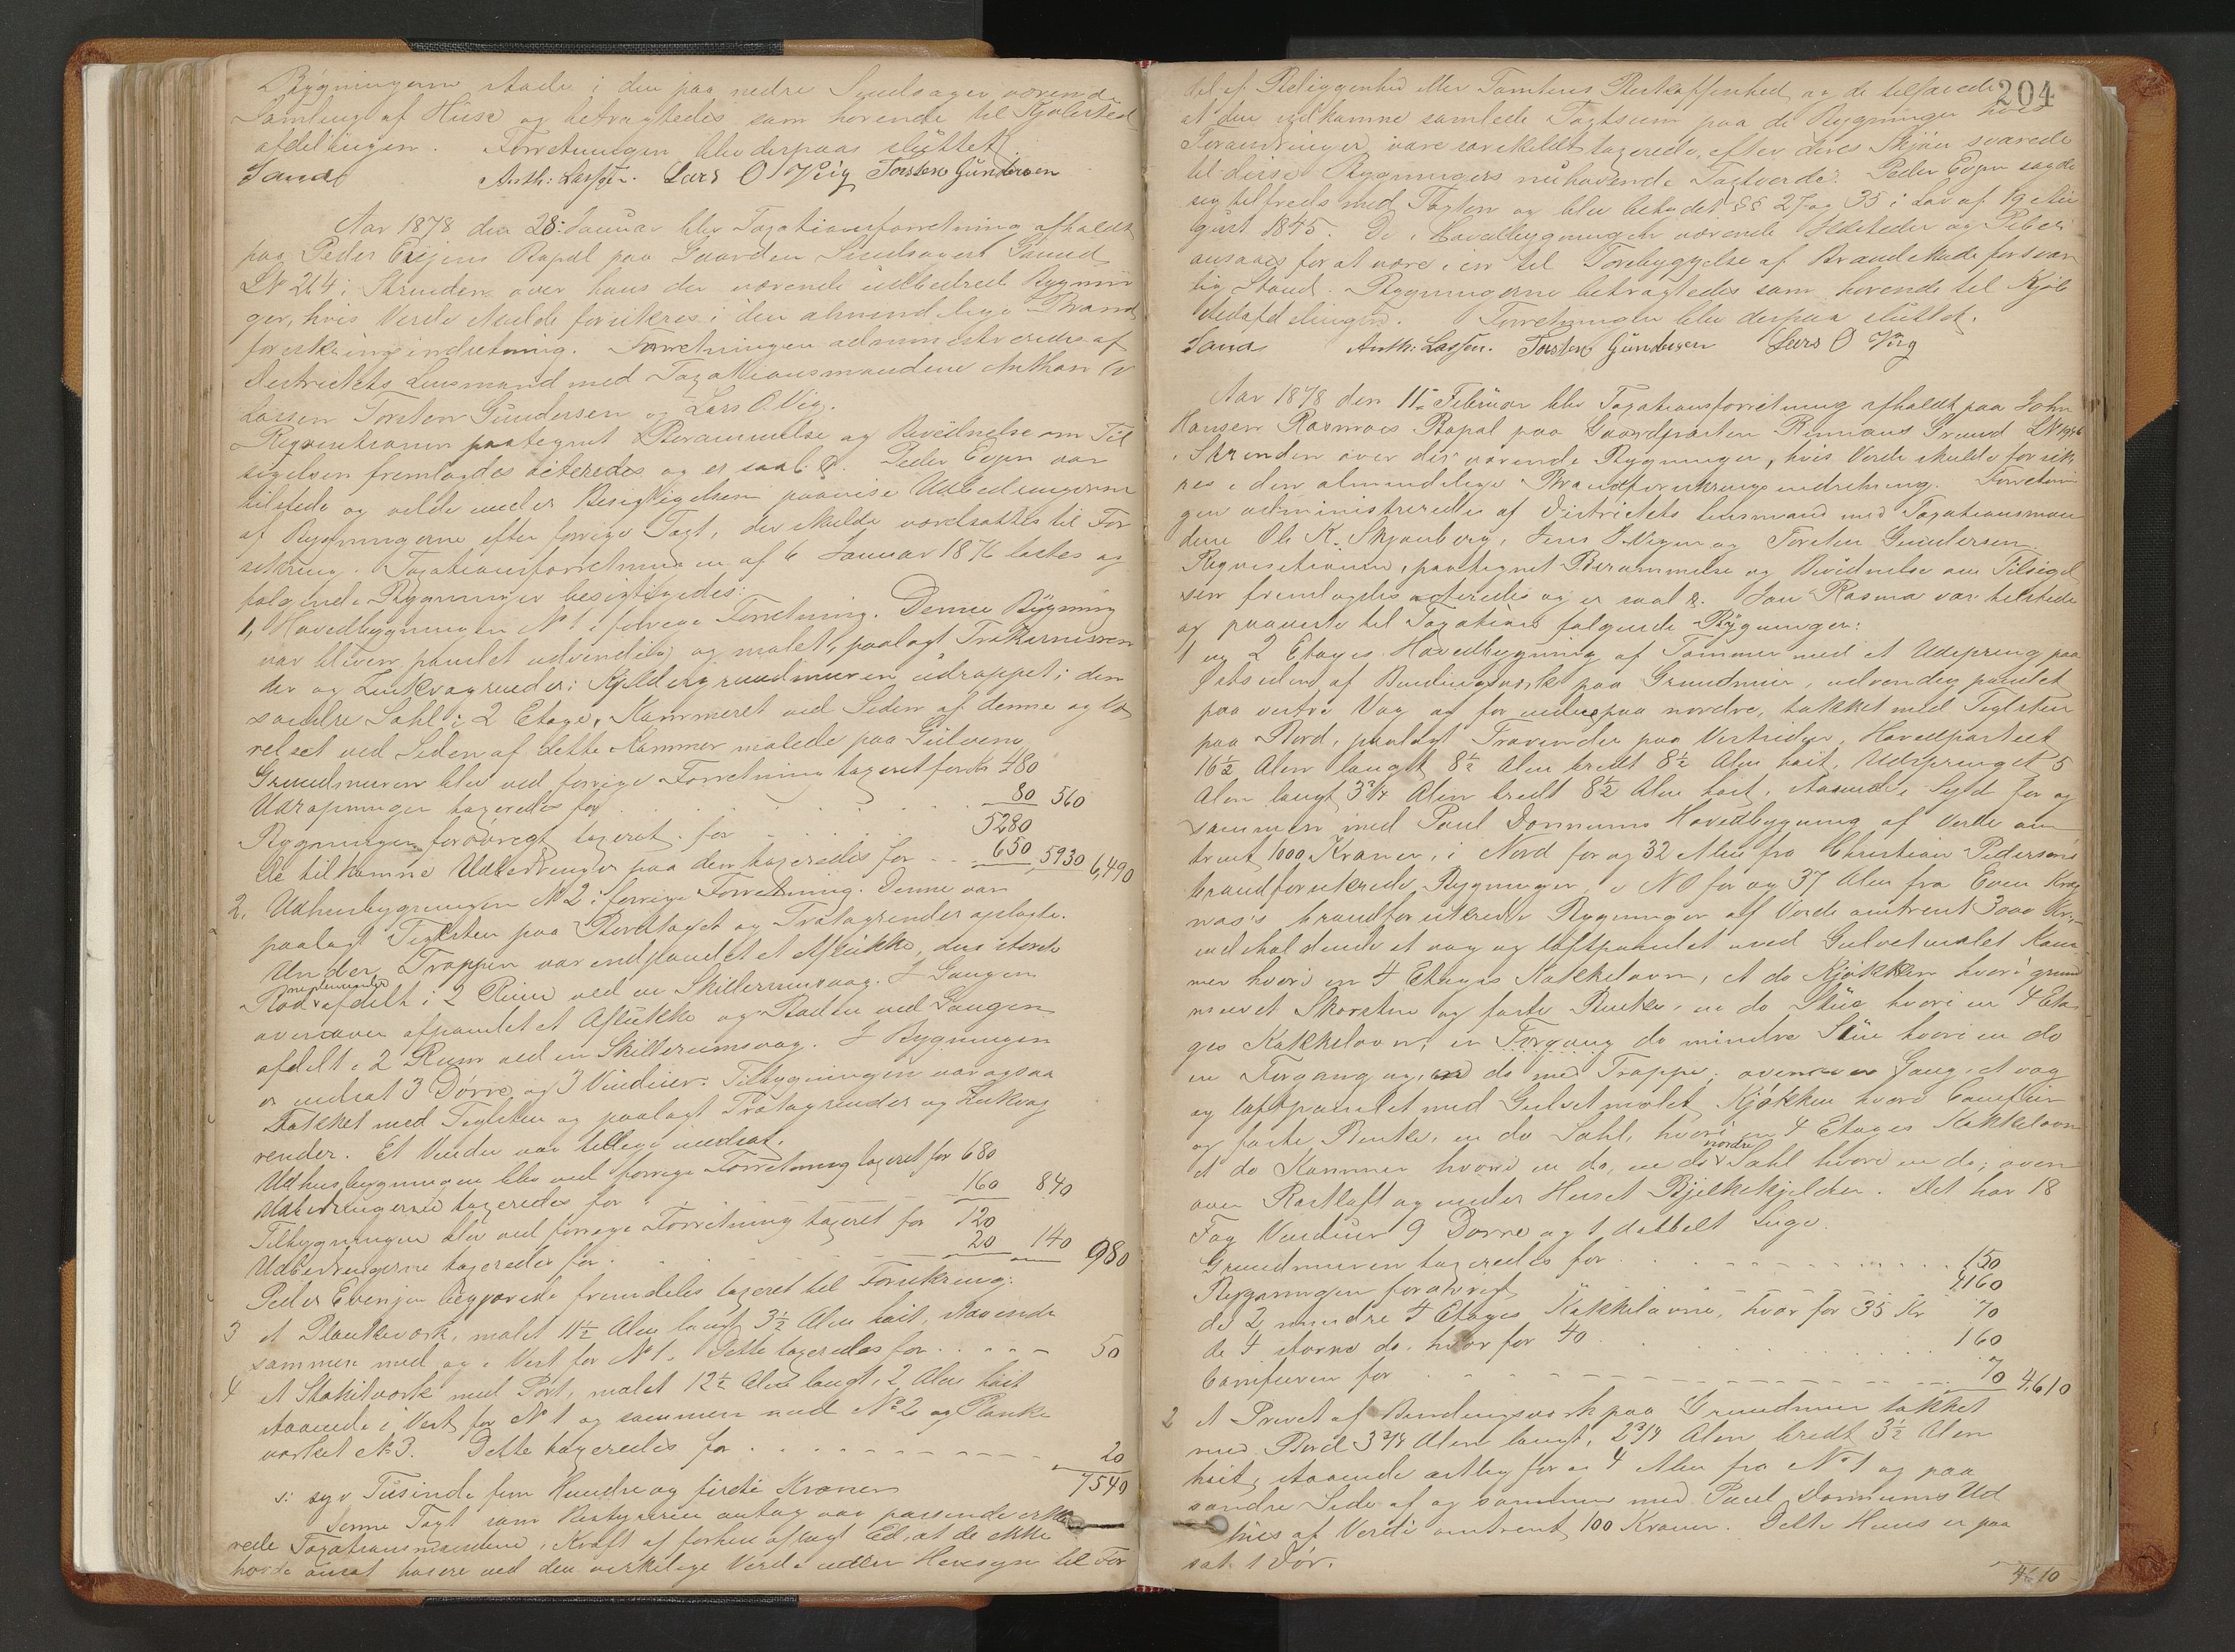 Bygningerne stode i den paa nedre Sundsøger værende
Samling af Huse og betragtedes som hørende til Kjøbsted
afdelingen. Forretningen blev derpaa sluttet.
Sand Anth: Lassen. Lars O Vig Torsten Gundersen
Aar 1878 den 28: Januar blev Taxationsforretning afholdt
paa Peder Evjens Bopæl paa Gaarden Grund
LN 264 i Skruden over hans der værende udbedrede Bygnin
ger, hvis Værdi skulde forsikres i den almindelige Brand
forsikringsindretning. Forretningen administreredes af
Districtets Lensmand med Taxationsmændene Anthon
Lassen Torsten Gundersen og Lars O. Vig.
Requisitionen paategnet Berammelse og Bevidnelse om Til
sigelsen fremlagdes acteredes og er saal: Peder Evjen var
tilstede og vilde under Besigtigelsen paavise Udbedringerne
af Bygningerne efter forrige Taxt, der skulde værdsættes til For
sikring. Taxationsforretningen af 6 Januar 1876 læstes og
følgende Bygninger besigtigedes:
1, Hovedbygningen N 1 i forrige Forretning. Denne Bygning
var bleven panelet udvendig og malet, paalagt
der og Kjeldergrundmuren udrappet; den
søndre Sahl i 2 Etage, Kammeret ved Siden af denne og Væ
relset ved Siden af dette Kammer malede paa Gulvene
Grundmuren blev ved forrige Forretning taxeret for Kr 480
Udrapningen taxeredes for 80 560
Bygningen forøvrigt taxeret for 5280
De tilkomne Udbedringer paa den taxeredes for 650 5930 6,490
2, Udhusbygningen N 2 i forrige Forretning. Denne var
paalagt Teglsten paa Bordtaget og Tratagrender oplagte.
Under Trappen var indpanelet et Aflukke, den store
nedenunder
Bod afdelt i 2 Rum ved en Skillerumsvæg. I Gangen
ovenover afpanelet et Aflukke og Boden ved Gangen
afdelt i 2 Rum ved en Skillerumsvæg. I Bygningen
er indsat 3 Dørre og 3 Vinduer. Tilbygningen var ogsaa
Takket med Teglsten og paalagt Tratagrender og
render. Et Vindu var tillige indsat.
Udhusbygningen blev ved forrige Forretning taxeret for 680
Udbedringerne taxeredes for 160 840
Tilbygningen blev ved forrige Forretning taxeret for 120
Udbedringerne taxeredes for 20 140 980
Peder Evenjen begjærede fremdeles taxeret til Forsikring:
3 et Plankeværk, malet 11½ Alen langt 3½ Alen høit, staaende
sammen med og i Vest for N 1. Dette taxeredes for 50
4 et Stakitværk med Port, malet 12½ Alen langt, 2 Alen høit
staaende i Vest for N 1 og sammen med No 2 og Planke
værket N 3. Dette taxeredes for 20
7540
s: syv Tusinde fem Hundre og firti Kroner
Denne Taxt som Bestyreren antog var passende erklæ
rede Taxationsmændene i Kraft af forhen aflagt Ed, at de ikke
havde ansat høiere end den virkelige Værdi uden Hensyn til For
204
del af Beliggenhed eller Tomtens Beskaffenhed og de tilføiede
at den udkomne samlede Taxtsum paa de Bygninger hvis
Forandringer vare særskildt taxerede, efter deres Skjøn svarede
til disse Bygningers nuhavende Taxtværdi. Peder Evjen sagde
sig tilfreds med Taxten og blev betydet §§ 27 og 35 i Lov af 19 Au
gust 1845. De i Hovedbygningen værende Ildsteder og Piber
ansaaes for at være i en til Forebyggelse af Brandskade forsvar
lig Stand. Bygningerne betragtedes som hørende til Kjøb
stedafdelingen. Forretningen blev derpaa sluttet.
Sand Anth: Lassen. Torsten Gundersen Lars O Vig
Aar 1878 den 11 Februar blev Taxationsforretning afholdt paa John
Hansen Rasmoes Bopæl paa Gaardparten Grund LN
i Skruden over der værende Bygninger, hvis Værdi skulde forsik
res i den almindelige Brandforsikringsindretning. Forretnin
gen administreredes af Districtets Lensmand med Taxationsmæn
dene Ole K. Skjønberg, Jens og Torsten Gundersen.
Requisitionen, paategnet Berammelse og Bevidnelse om Tilsigel
sen fremlagdes acteredes og er saal. Rasmo var tilstede
og paaviste til Taxation følgende Bygninger:
1 en 2 Etages Hovedbygning af Tømmer med et Udspring paa
Østsiden af Bindingsværk paa Grundmur, udvendig panelet
paa vestre Væg og for enden paa nordre, takket med Teglsten
paa Bord, paalagt paa Vestsiden. Hovedpartiet
16½ Alen langt 8½ Alen bredt 8½ Alen høit. Udspringet 5
Alen langt 3¾ Alen bredt 8½ Alen høit, staaende Syd for og
sammen med Paul Donnums Hovedbygning af Værdi om
trent 1000 Kroner, i Nord for og 32 Alen fra Christian Pedersens
brandforsikrede Bygninger, i NO for og 37 Alen fra Even
brandforsikrede Bygninger af Værdi omtrent 3000 Kr.,
indeholdende et væg og loftpanelet med Gulvet malet Kam
mer hvori en 4 Etages Kakkelovn, et do Kjøkken hvori grund
muret Skorsten og faste Bænke, en do Stue hvori en 4 Eta
ges Kakkelovn, en Forgang do mindre Stue hvori en do
en Forgang og, do med Trappe; ovenover Gang, et væg
og loftpanelet med Gulvet malet Kjøkken hvori Comfuir
og faste Bænke, en do Sahl, hvori en 4 Etages Kakkelovn
nordre
et do Kammer hvori en do, en do Sahl hvori en do; oven
over Røstloft og under Huset Bjelkekjelder. Det har 18
Fag Vinduer 9 Dørre og 1 dobbelt Luge.
Grundmuren taxeredes for 150
Bygningen forøvrigt 4160
de 2 mindre 4 Etages Kakkelovne, hvær for 35 Kr 70
de 4 større do. hvær for 40 160
Comfuren for 70 4,610
2 et Privet af Bindingsværk paa Grundmur takket
med Bord 3¾ Alen langt, 2¾ Alen bredt 3½ Alen
høit, staaende østlig for og 4 Alen fra No 1 og paa
søndre Side af og sammen med Paul Donnums Ud
hus af Værdi omtrent 100 Kroner. Dette Huus er paa
sat 1 Dør.
4610